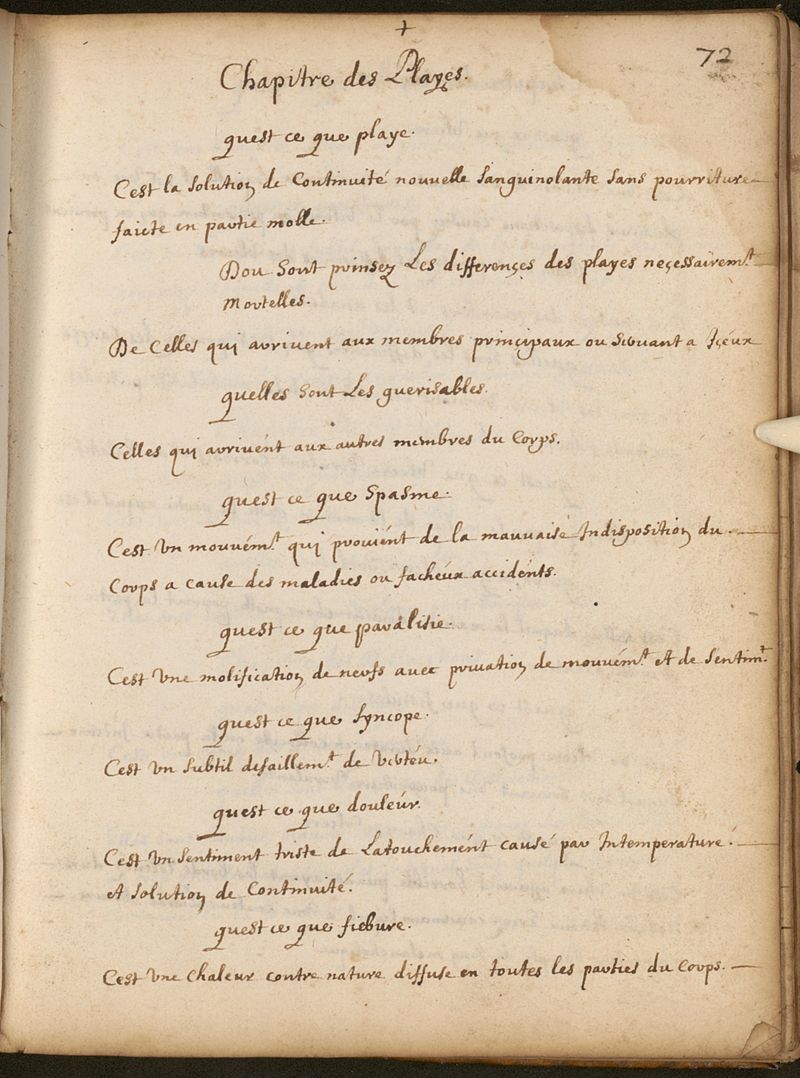 +
72
Chapitre des Playes.
quest ce que playe.
Cest la solution de Continuité nouvelle sanguinolante sans pourriture
faicte en partie molle.
Dou sont prinsez Les differençes des playes neçessairemt
mortelles.
De Celles qui arrivent aux membres prinçipaux ou sìvant a Içeux
quelles sont Les guerisables.
Celles qui arrivent aux autres membres du Corps.
quest ce que spasme.
Cest Un mouvemt qui provient de la mauvaise Indisposition du
Corps a cause des maladies ou facheux accidents.
quest ce que paralisie.
Cest Une molification de nerfs avec privation de mouvemt et de sentimt
quest ce que syncope.
Cest Un subtil defaillemt de Verteu.
quest ce que douleur.
Cest Un sentiment triste de Latouchement causé par Intemperature.
et solution de Continuité.
quest ce que fiebure.
Cest Une Chaleur contre nature diffuse en toutes les parties du Corps.